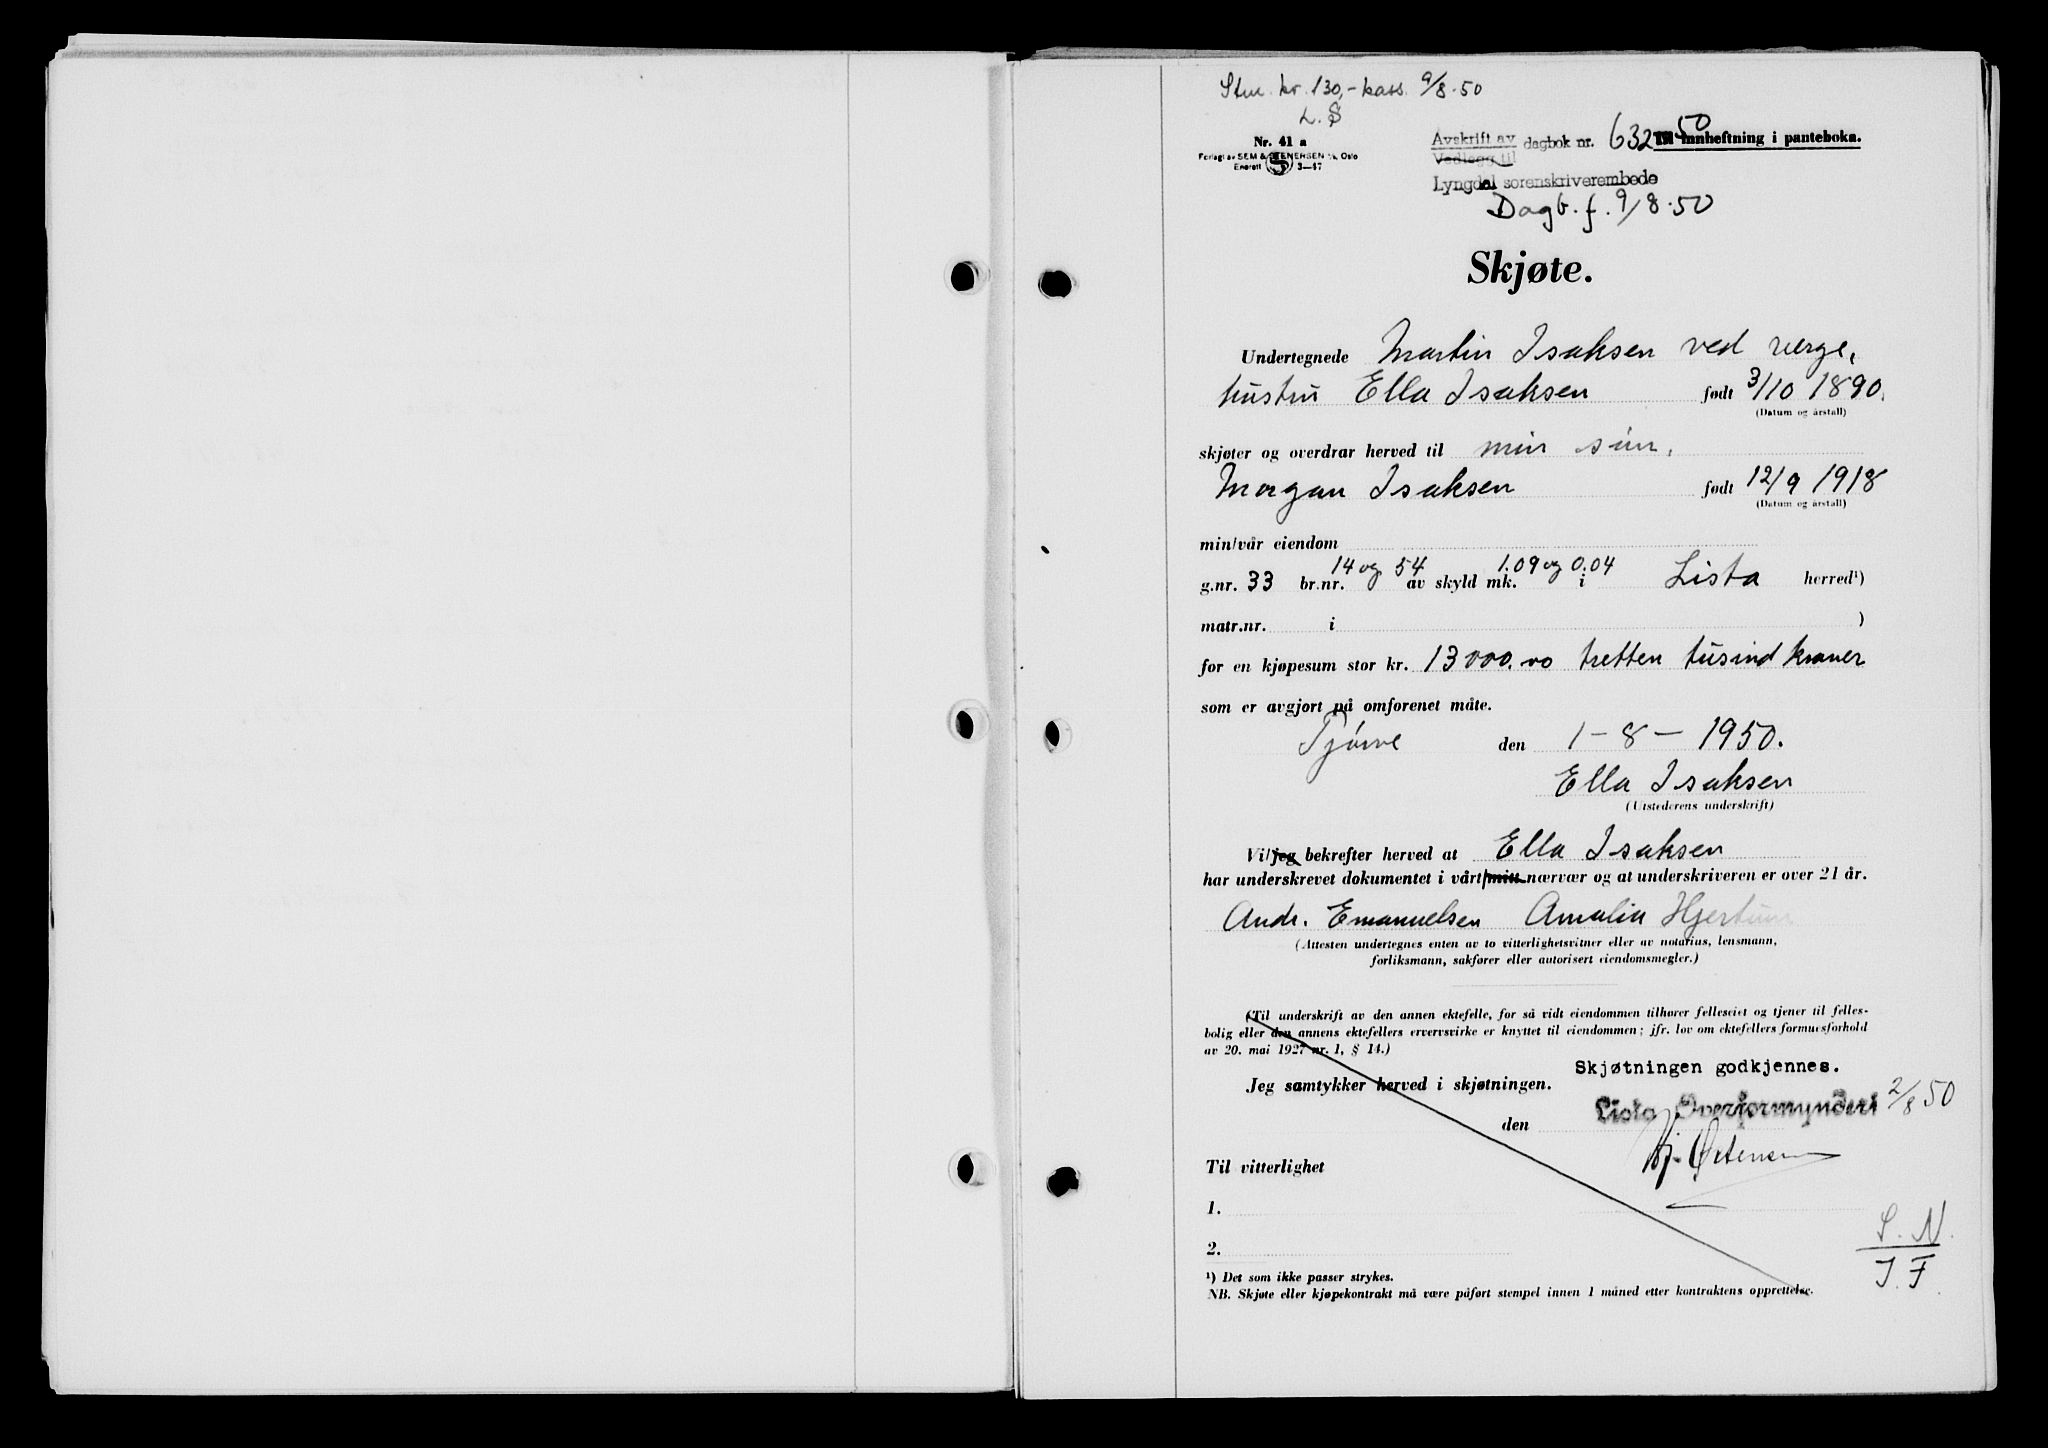 Stm. kr. 130,- kass. 9/8-50
L. S
Nr. 41 a
Forlagt av SEM & STENERSEN A/s, Oslo
Enerett 3—47
Avskrift av dagbok nr. 632 50 Til innheftning i panteboka.
Vedlegg til
Lyngdal sorenskriverembede
Dagb. f. 9/8-50
Skjøte.
Undertegnede Martin Isaksen ved verge,
hustru Ella Isaksen født 3/10 1890.
(Datum og årstall)
skjøter og overdrar herved til min sønn,
Morgan Isaksen født 12/9 1918
(Datum og årstall)
min/vår eiendom
g.nr. 33 br.nr. 14 og 54 av skyld mk. 1.09 og 0.04 i Lista herred¹)
matr.nr. i )
for en kjøpesum stor kr. 13 000.00 tretten tusind kroner
som er avgjort på omforenet måte.
Tjörve den 1-8-1950.
Ella Isaksen
(Utstederens underskrift)
Vi/jeg bekrefter herved at Ella Isaksen
har underskrevet dokumentet i vårt/mitt nærvær og at underskriveren er over 21 år.
Andr. Emanuelsen Amalia Hjertum
(Attesten undertegnes enten av to vitterlighetsvitner eller av notarius, lensmann,
forliksmann, sakfører eller autorisert eiendomsmegler.)
(Til underskrift av den annen ektefelle, for så vidt eiendommen tilhører felleseiet og tjener til felles-
bolig eller den annens ektefellers ervervsvirke er knyttet til eiendommen; jfr. lov om ektefellers formuesforhold
av 20. mai 1927 nr. 1, § 14.)
Skjøtningen godkjennes.
Jeg samtykker herved i skjøtningen.
Lista Overformynderi 2/8 50
den
Hj. Østensen
Til vitterlighet
1.
2.
S. N.
J. F.
¹) Det som ikke passer strykes.
NB. Skjøte eller kjøpekontrakt må være påført stempel innen 1 måned etter kontraktens opprettelse.